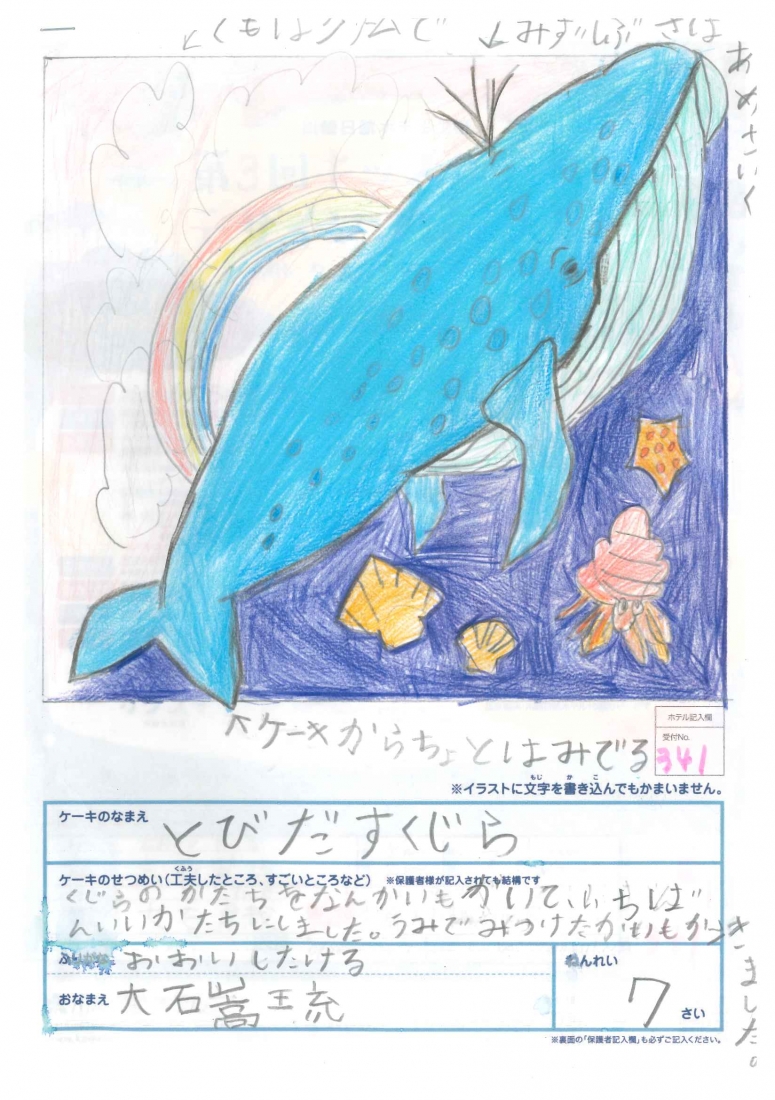 ↙くもはグムで ↙みずしぶきは
あめざいく
↖ケーキからちょとはみでる
ホテル記入欄
受付No.
341
※イラストに文字を書き込んでもかまいません。
ケーキのなまえ とびだすくじら
ケーキのせつめい(工夫したところ、すごいところなど) ※保護者様が記入されても結構です
くじらのかたちをなんかいもかいて、いちば
んいいかたちにしました。うみでみつけたかいもかきました。
おおいしたける
おなまえ 大石嵩琉
ねんれい
7さい
※裏面の「保護者記入欄」も必ずご記入ください。